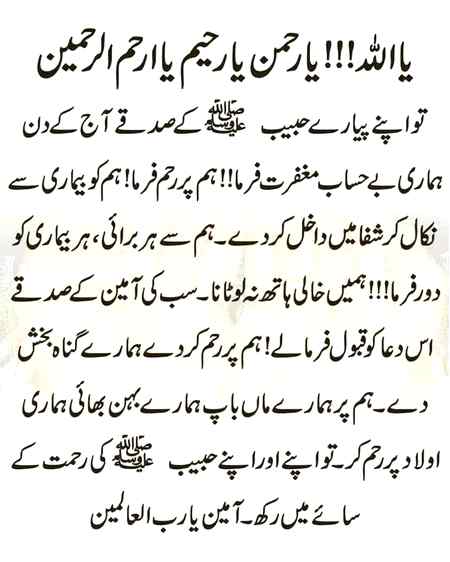 یا اللہ!!! یا رحمن یا رحیم یا ارحم الرحمین
تو اپنے پیارے حبیب ﷺ کے صدقے آج کے دن
ہماری بے حساب مغفرت فرما!! ہم پر رحم فرما! ہم کو بیماری سے
نکال کر شفا میں داخل کر دے۔ ہم سے ہر برائی، ہر بیماری کو
دور فرما!!! ہمیں خالی ہاتھ نہ لوٹانا۔ سب کی آمین کے صدقے
اس دعا کو قبول فرما لے! ہم پر رحم کر دے ہمارے گناہ بخش
دے۔ ہم پر ہمارے ماں باپ ہمارے بہن بھائی ہماری
اولاد پر رحم کر۔ تو اپنے اور اپنے حبیب ﷺ کی رحمت کے
سائے میں رکھ۔ آمین یا رب العالمین